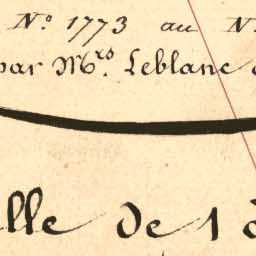 N.º 1773 au N
par M.rs Leblanc
lle de 1 à